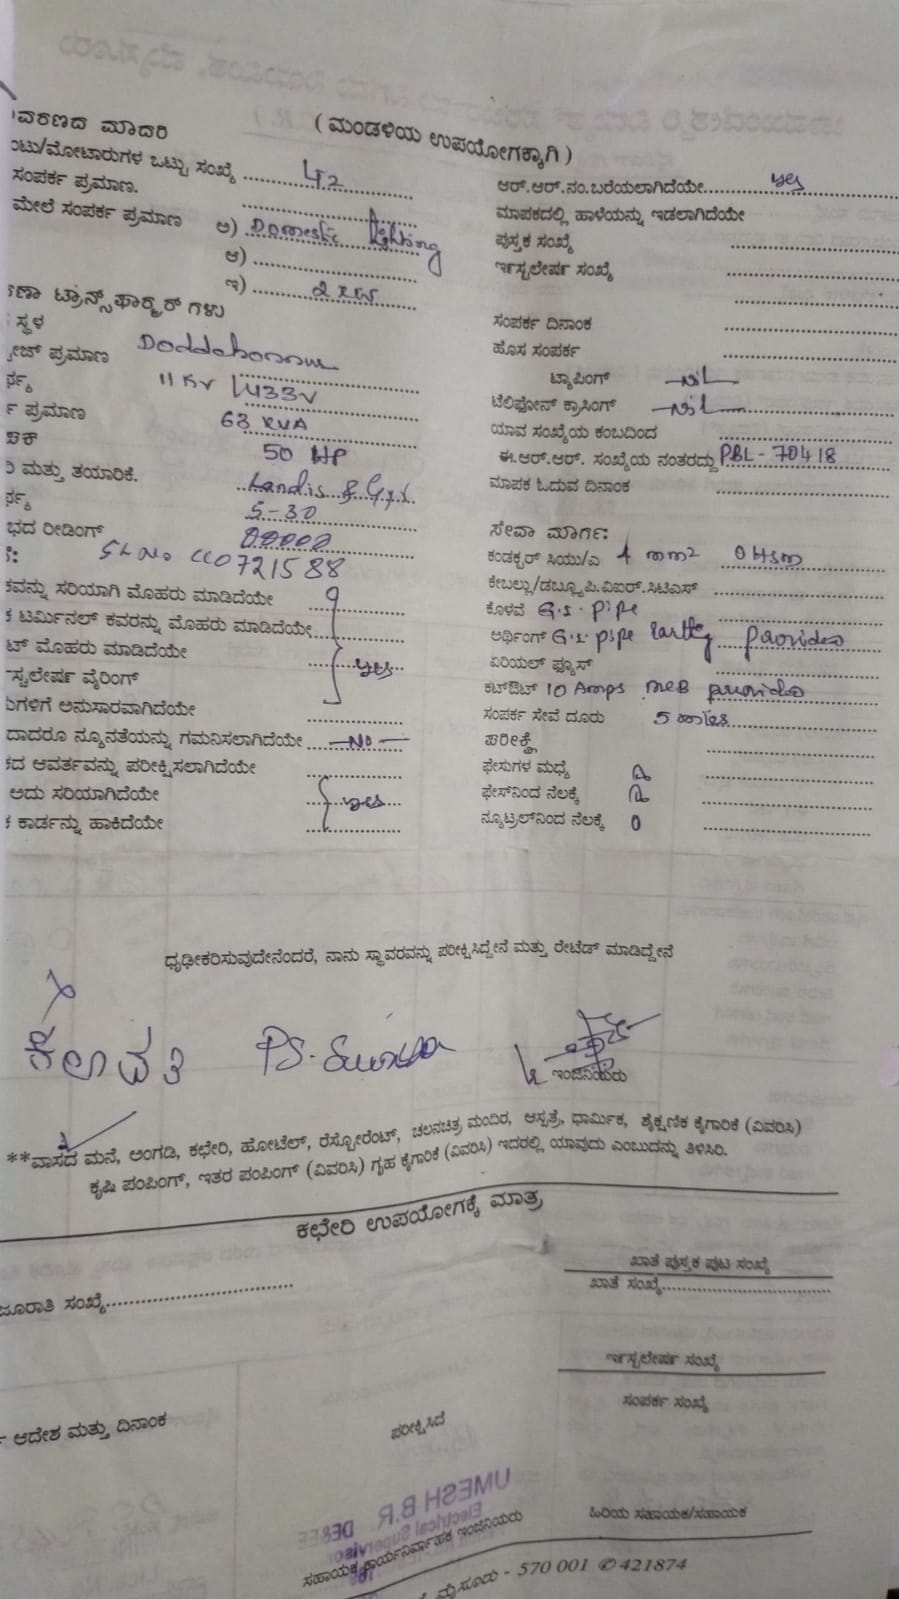 (ಮಂಡಳಿಯ ಉಪಯೋಗಕ್ಕಾಗಿ)
ವರಣದ ಮಾದರಿ
ಂಟು/ಮೋಟಾರುಗಳ ಒಟ್ಟು ಸಂಖ್ಯೆ
ಸಂಪರ್ಕ ಪ್ರಮಾಣ.
ಮೇಲೆ ಸಂಪರ್ಕ ಪ್ರಮಾಣ ಅ) Domestic lighting
ಆ)
ಇ) 2 KW
ಣಾ ಟ್ರಾನ್ಸ್‌ಫಾರ್ಮರ್ ಗಳು
ಸ್ಥಳ
ೇಜ್ ಪ್ರಮಾಣ
11 KV / 433V
ಪ್ರಮಾಣ 63 KVA
50 HP
ಮತ್ತು ತಯಾರಿಕೆ. Landis & Gyr
5-30
ಭದ ರೀಡಿಂಗ್ 00000
SL No 721588
ಕವನ್ನು ಸರಿಯಾಗಿ ಮೊಹರು ಮಾಡಿದೆಯೇ
ಕ ಟರ್ಮಿನಲ್ ಕವರನ್ನು ಮೊಹರು ಮಾಡಿದೆಯೇ
ಟ್ ಮೊಹರು ಮಾಡಿದೆಯೇ yes
ಸ್ಟಲೇಷರ್ ವೈರಿಂಗ್
ಗಳಿಗೆ ಅನುಸಾರವಾಗಿದೆಯೇ
ದಾದರೂ ನ್ಯೂನತೆಯನ್ನು ಗಮನಿಸಲಾಗಿದೆಯೇ NO
ಕದ ಆವರ್ತವನ್ನು ಪರೀಕ್ಷಿಸಲಾಗಿದೆಯೇ
ಅದು ಸರಿಯಾಗಿದೆಯೇ yes
ಕ ಕಾರ್ಡನ್ನು ಹಾಕಿದೆಯೇ
ಆರ್.ಆರ್.ನಂ.ಬರೆಯಲಾಗಿದೆಯೇ yes
ಮಾಪಕದಲ್ಲಿ ಹಾಳೆಯನ್ನು ಇಡಲಾಗಿದೆಯೇ
ಪುಸ್ತಕ ಸಂಖ್ಯೆ
ಇನ್ಸ್ಟಲೇಷರ್ ಸಂಖ್ಯೆ
ಸಂಪರ್ಕ ದಿನಾಂಕ
ಹೊಸ ಸಂಪರ್ಕ
ಟ್ಯಾಪಿಂಗ್ Nil
ಟೆಲಿಫೋನ್ ಕ್ರಾಸಿಂಗ್ Nil
ಯಾವ ಸಂಖ್ಯೆಯ ಕಂಬದಿಂದ
ಈ.ಆರ್.ಆರ್. ಸಂಖ್ಯೆಯ ನಂತರದ್ದು PBL-70418
ಮಾಪಕ ಓದುವ ದಿನಾಂಕ
ಸೇವಾ ಮಾರ್ಗ:
ಕಂಡಕ್ಟರ್ ಸಿಯು/ಎ 4 mm2
ಕೇಬಲ್ಲು/ಡಬ್ಲ್ಯೂ.ಪಿ.ವಿಐರ್.ಸಿಟಿಎಸ್
ಕೊಳವೆ G.I. pipe
ಅರ್ಥಿಂಗ್ G.I. pipe earthing provided
ಏರಿಯಲ್ ಫ್ಯೂಸ್
ಕಟ್‌ಔಟ್ 10 Amps MCB provided
ಸಂಪರ್ಕ ಸೇವೆ ದೂರು 5 mtes
ಪರೀಕ್ಷೆ
ಫೇಸುಗಳ ಮಧ್ಯೆ
ಫೇಸ್‌ನಿಂದ ನೆಲಕ್ಕೆ
ನ್ಯೂಟ್ರಲ್‌ನಿಂದ ನೆಲಕ್ಕೆ 0
ಧೃಢೀಕರಿಸುವುದೇನೆಂದರೆ, ನಾನು ಸ್ಥಾವರವನ್ನು ಪರೀಕ್ಷಿಸಿದ್ದೇನೆ ಮತ್ತು ರೇಟೆಡ್ ಮಾಡಿದ್ದೇನೆ
ಕಲಾವತಿ
ಇಂಜಿನಿಯರು
**ವಾಸದ ಮನೆ, ಅಂಗಡಿ, ಕಛೇರಿ, ಹೋಟೆಲ್, ರೆಸ್ಟೋರೆಂಟ್, ಚಲನಚಿತ್ರ ಮಂದಿರ, ಆಸ್ಪತ್ರೆ, ಧಾರ್ಮಿಕ, ಶೈಕ್ಷಣಿಕ ಕೈಗಾರಿಕೆ (ವಿವರಿಸಿ)
ಕೃಷಿ ಪಂಪಿಂಗ್, ಇತರ ಪಂಪಿಂಗ್ (ವಿವರಿಸಿ) ಗೃಹ ಕೈಗಾರಿಕೆ (ವಿವರಿಸಿ) ಇದರಲ್ಲಿ ಯಾವುದು ಎಂಬುದನ್ನು ತಿಳಿಸಿರಿ.
ಕಛೇರಿ ಉಪಯೋಗಕ್ಕೆ ಮಾತ್ರ
ಖಾತೆ ಪುಸ್ತಕ ಪುಟ ಸಂಖ್ಯೆ
ಜೂರಾತಿ ಸಂಖ್ಯೆ
ಖಾತೆ ಸಂಖ್ಯೆ
ಇನ್ಸ್ಟಲೇಷರ್ ಸಂಖ್ಯೆ
ಸಂಪರ್ಕ ಸಂಖ್ಯೆ
ಆದೇಶ ಮತ್ತು ದಿನಾಂಕ
ಪರೀಕ್ಷಿಸಿದೆ
UMESH B.R. DE&EE
Electrical Supervisor
ಸಹಾಯಕ ಕಾರ್ಯನಿರ್ವಾಹಕ ಇಂಜಿನಿಯರು
ಹಿರಿಯ ಸಹಾಯಕ/ಸಹಾಯಕ
ಮೈಸೂರು - 570 001 ✆ 421874